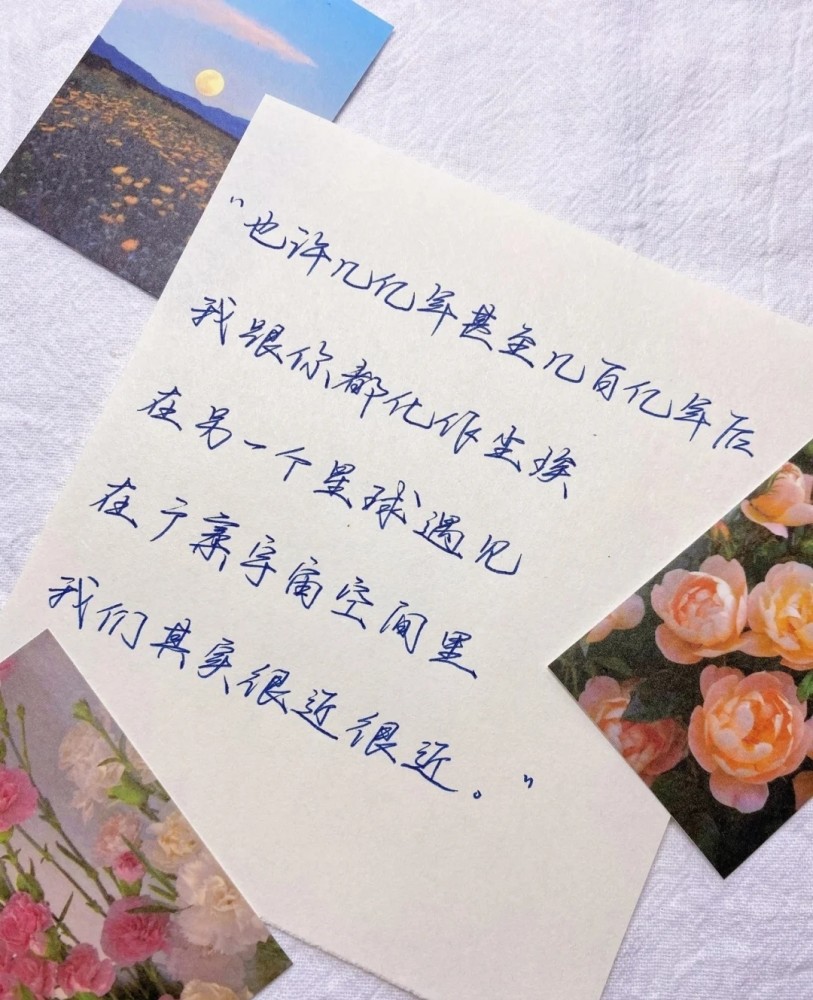 “也许几亿年甚至几百亿年后
我跟你都化作尘埃
在另一个星球遇见
在广袤宇宙空间里
我们其实很近很近。”